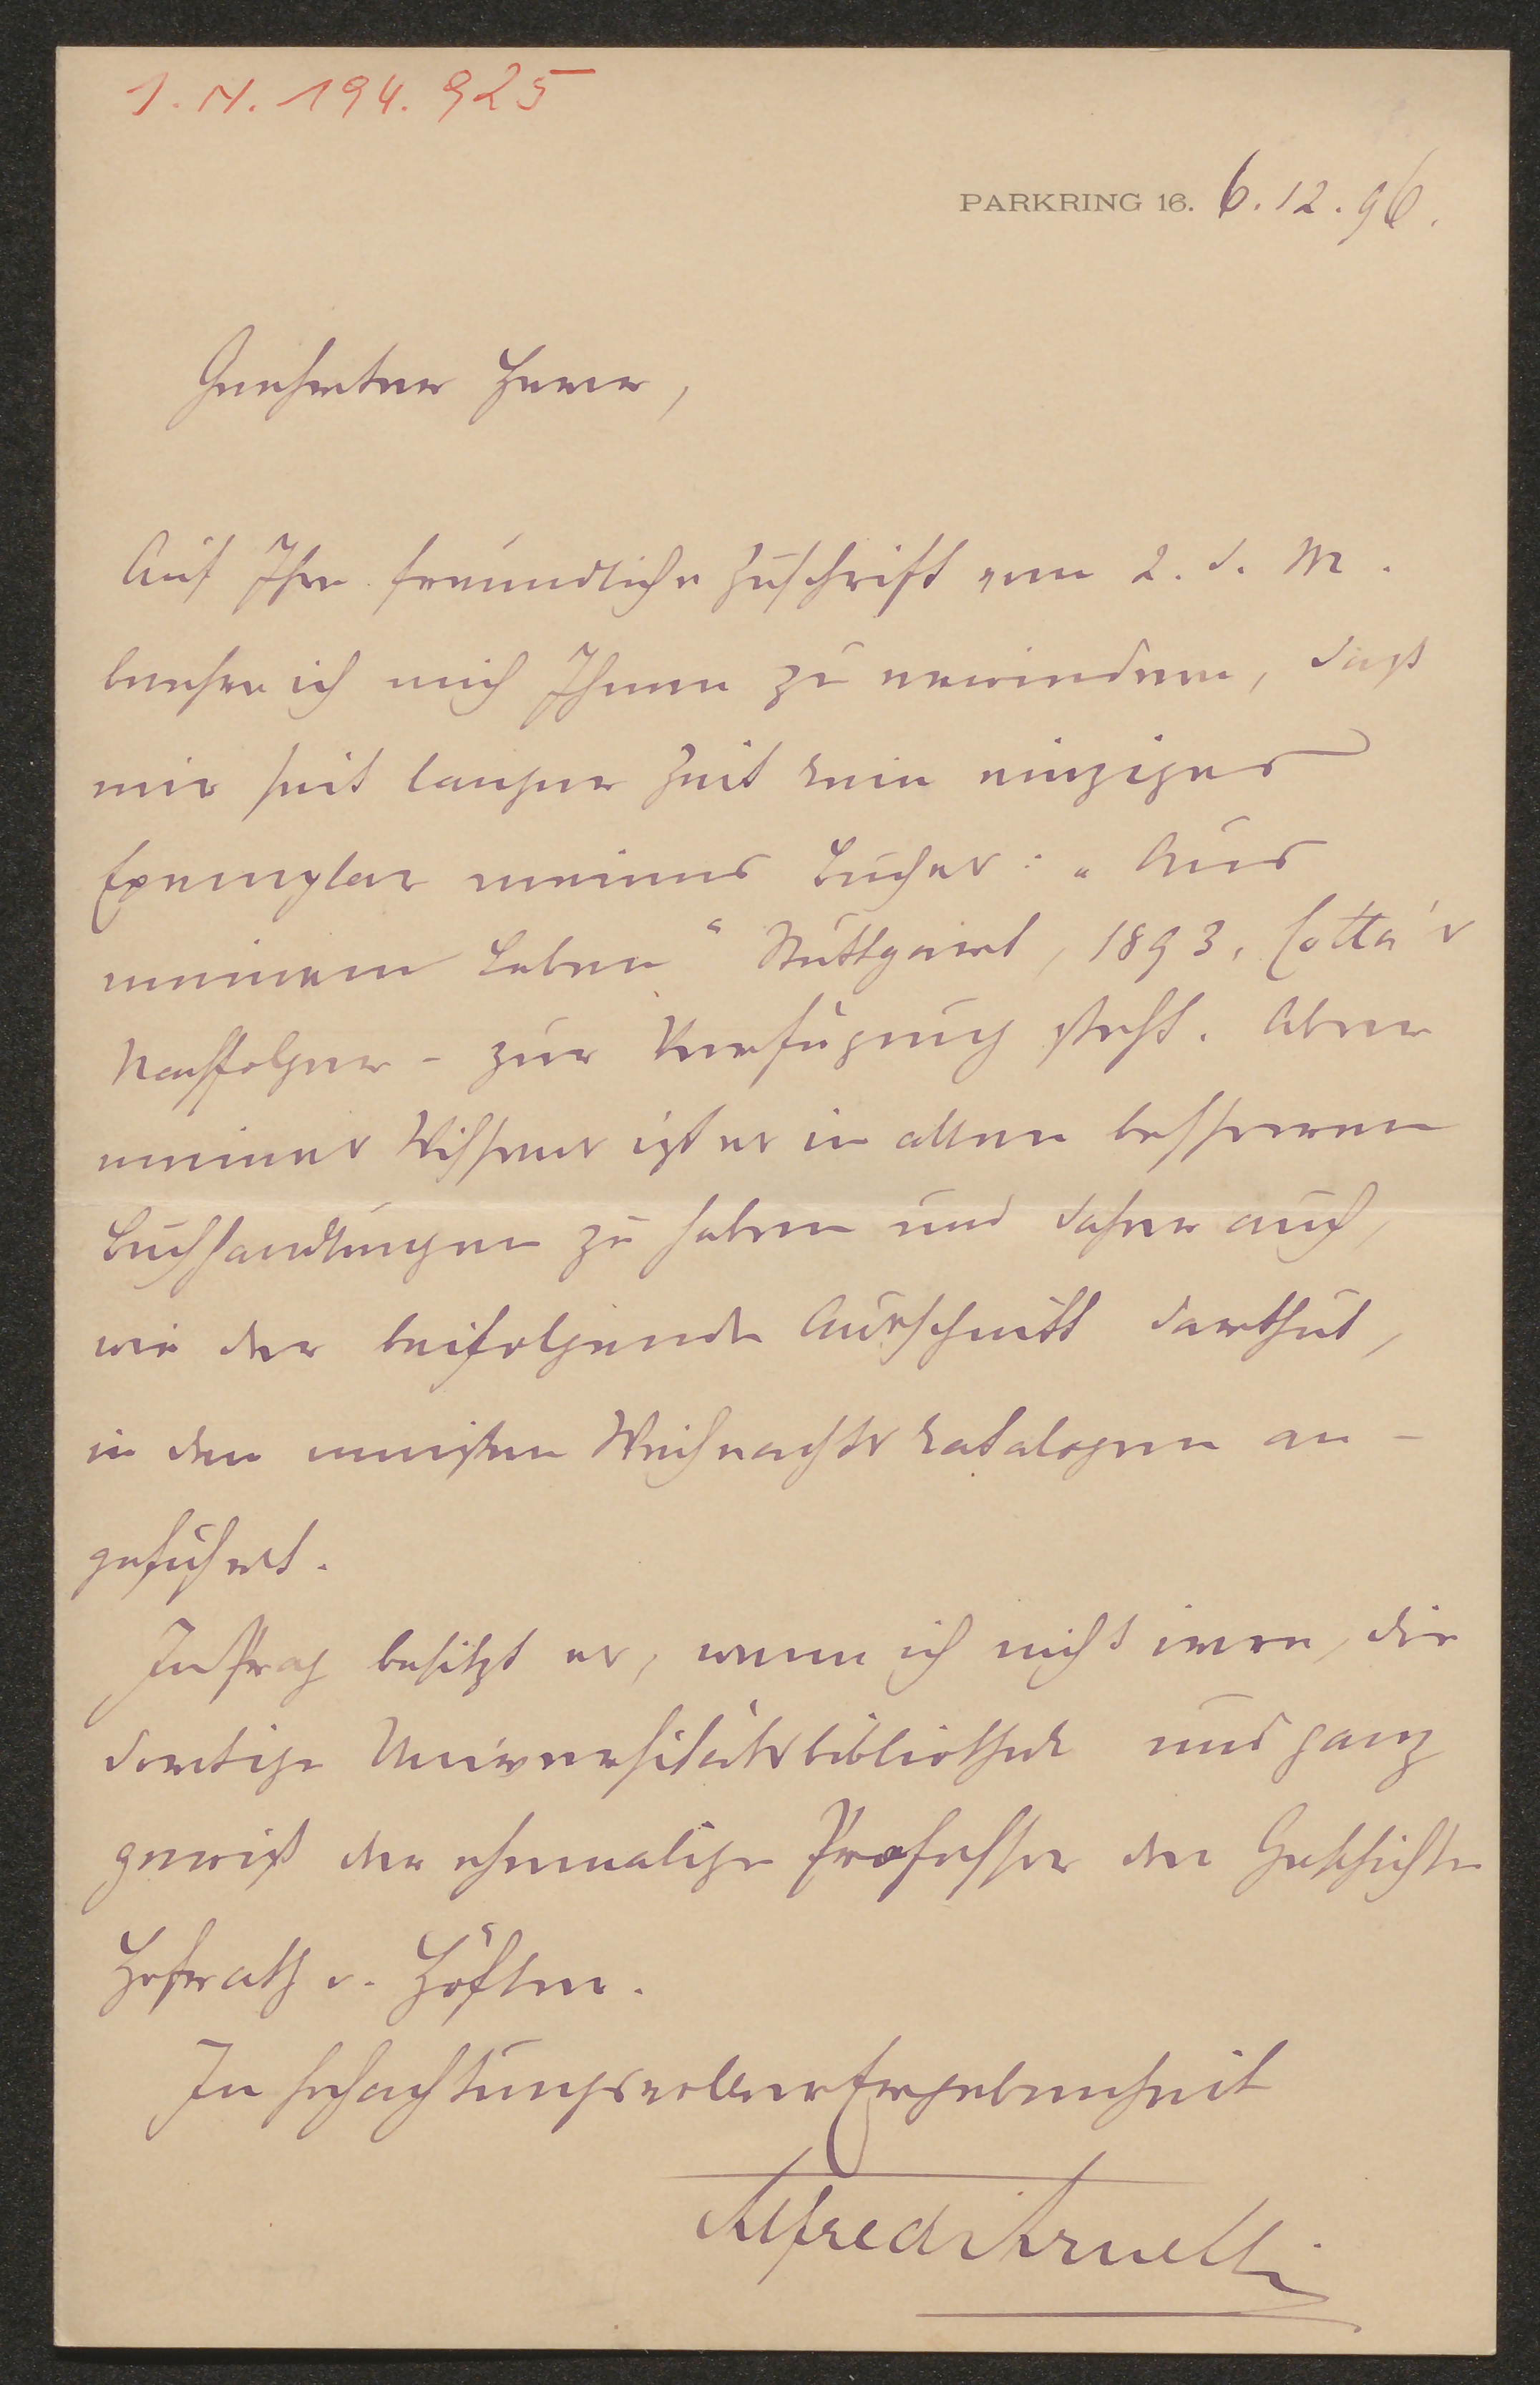 I. N. 194.925
PARKRING 16. 6.12.96.
Geehrter Herr,
Auf Ihre freundliche Zuschrift vom 2. d. M.
beehre ich mich Ihnen zu erwiedern, daß
mir seit langer Zeit kein einziges
Exemplar meines Buches: „Aus
meinem Leben“ Stuttgart, 1893, Cotta's
Nachfolger – zur Verfügung steht. Aber
meines Wissens ist es in allen besseren
Buchhandlungen zu haben und daher auch,
wie der beifolgende Ausschnitt darthut,
in den meisten Weihnachtskatalogen an-
geführt.
In Prag besitzt es, wenn ich nicht irre, die
dortige Universitätsbibliothek und ganz
gewiß der ehemalige Professor der Geschichte
Hofrath v. Höfler.
In hochachtungsvoller Ergebenheit
Alfred Arneth